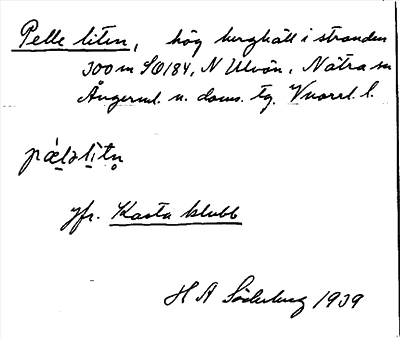 Pelle liten, hög berghäll i stranden
300 m SO 184, N Ulvön, Nätra sn
Ångerml. n. doms. tg. Vnorrl. l.
pæ̀ləlìtn̥
jfr. Kasta klubb
H A Söderberg 1939